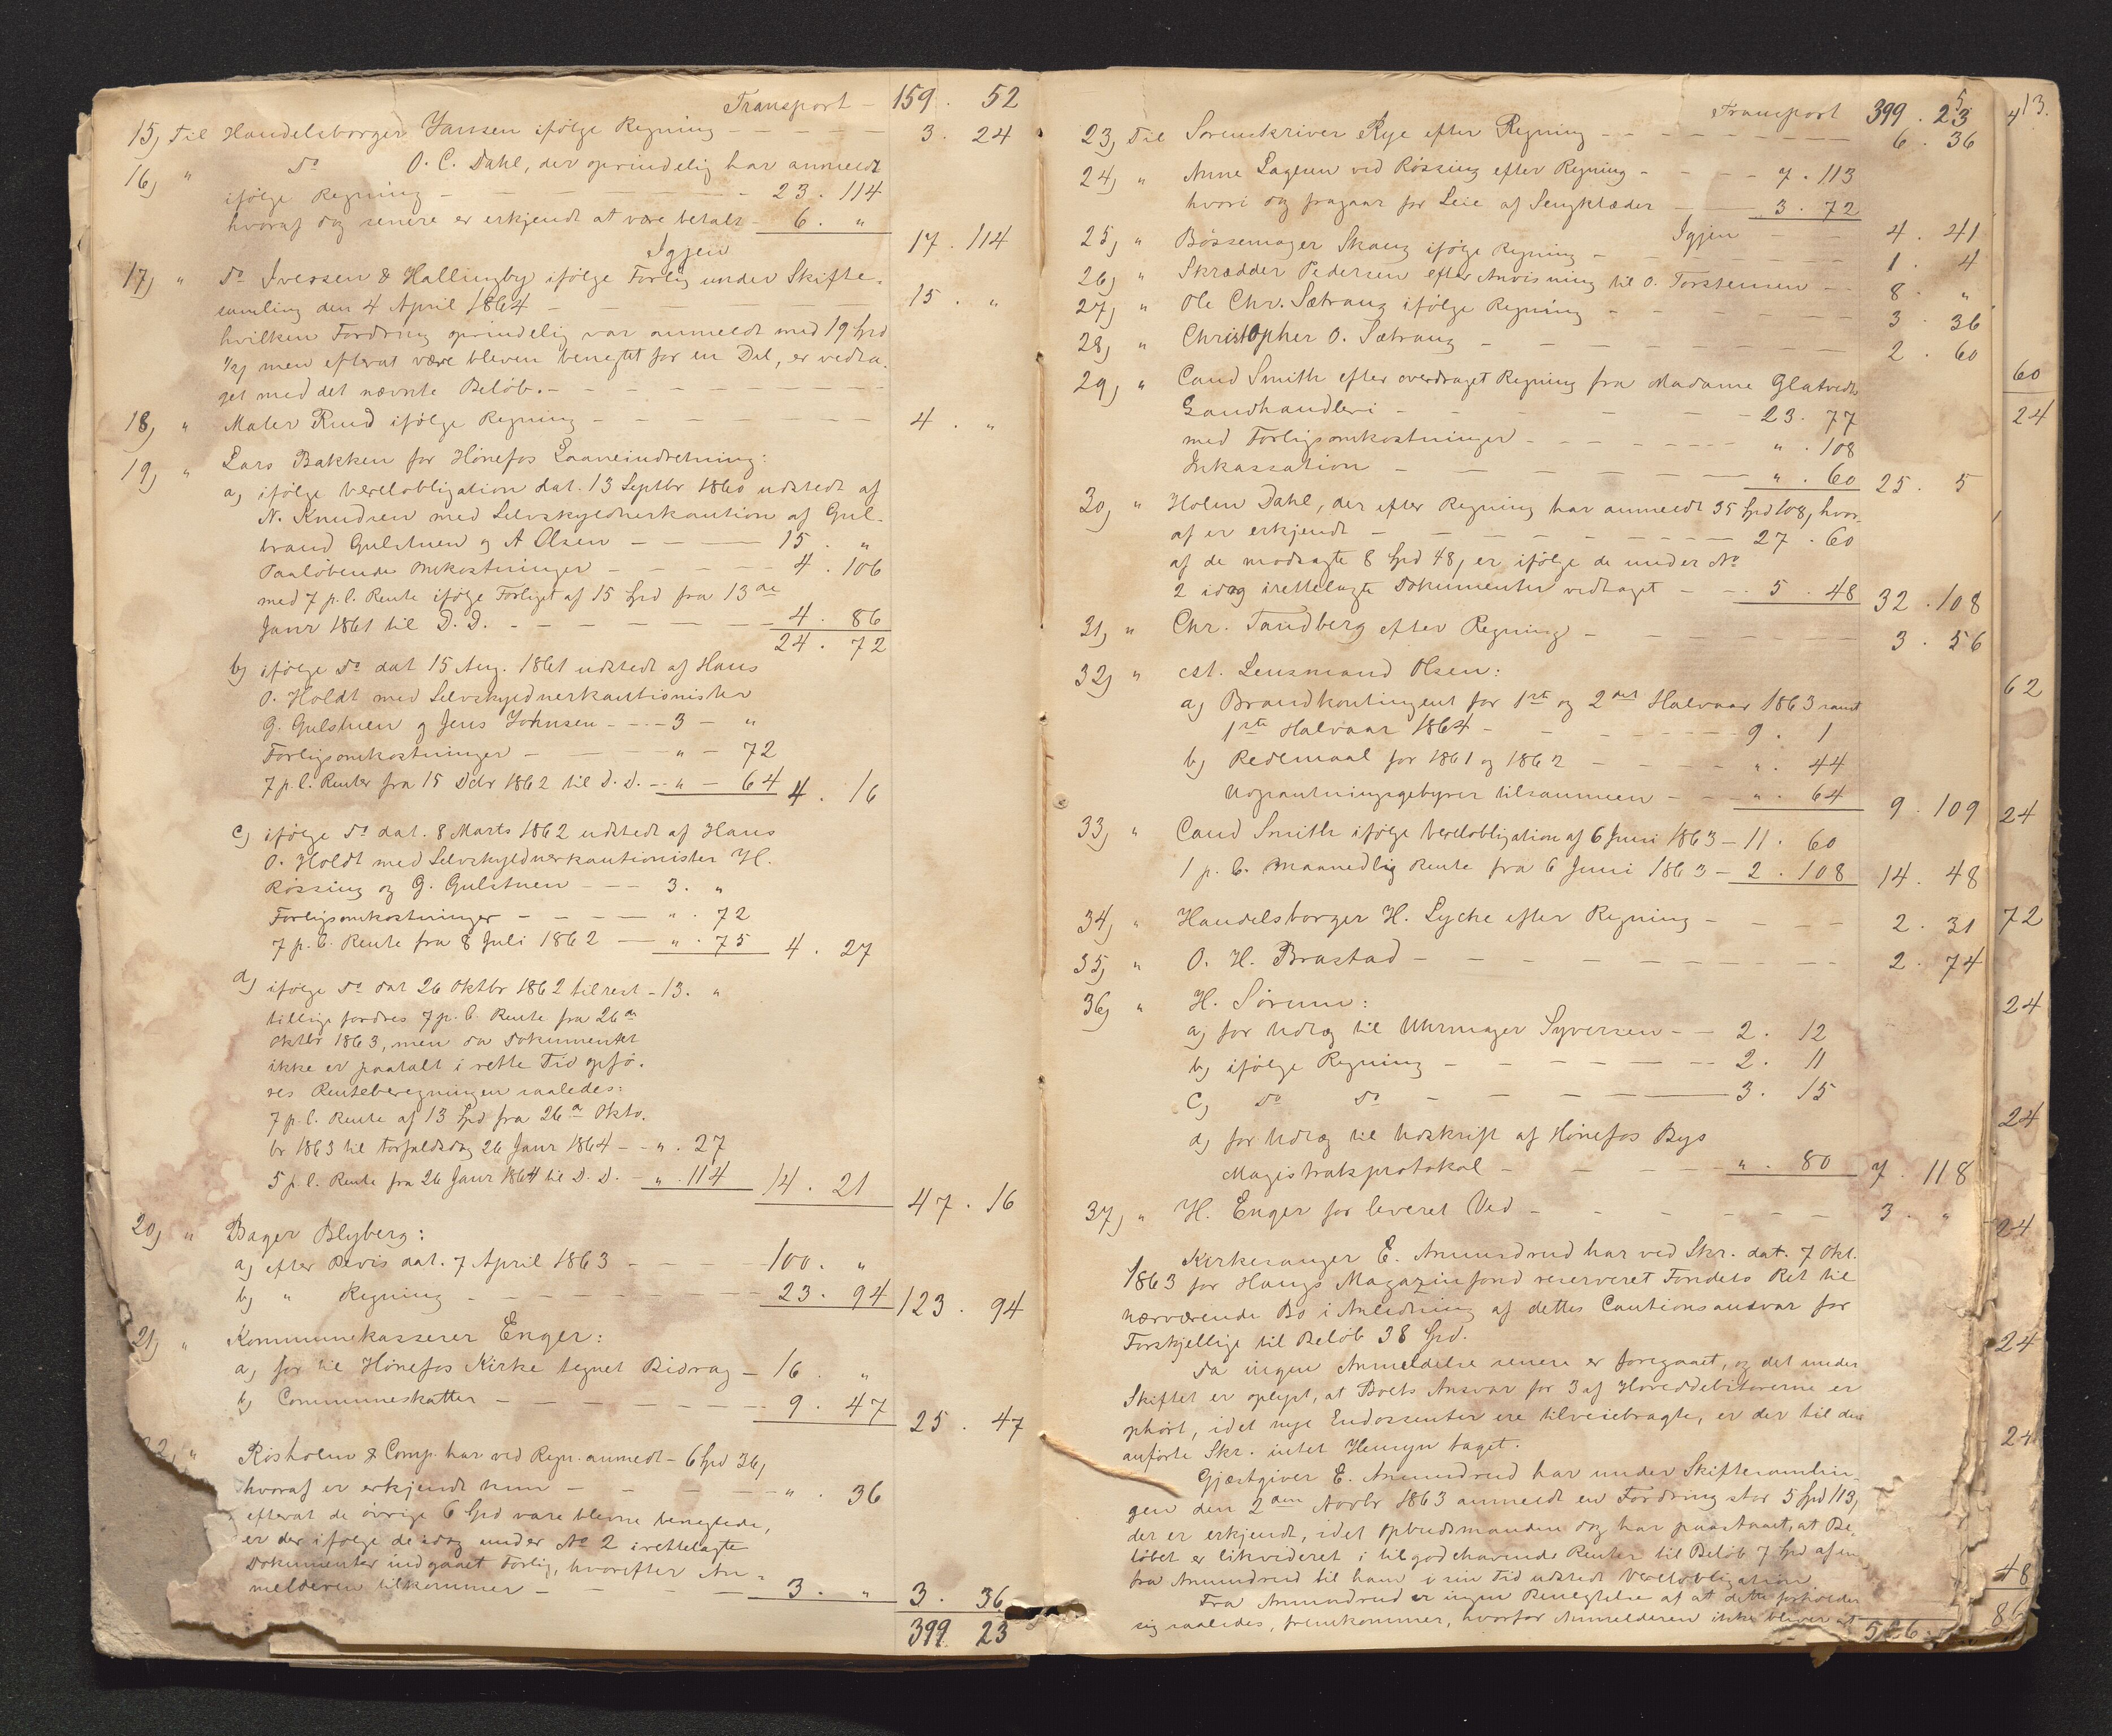 Transport – 159 . 52
15) Til Handelsborger Jansen ifølge Regning – – – 3 . 24
16) " Do O. C. Dahl, der oprindelig har anmeldt
ifølge Regning – – – – 23 . 114
hvoraf dog senere er erkjendt at være betalt – 6 . "
Igjen 17 . 114
17) " Do Iversen & Hallingby ifølge Forlig under Skifte-
samling den 4 April 1864 – – – 15 . "
hvilken Fordring oprindelig var anmeldt med 19 Spd
men efterat være bleven benegtet for en Del, er vedta-
get med det nævnte Beløb. – – –
18) " Maler Ruud ifølge Regning – – – 4 . "
19) " Lars Bakken for Hønefos Laaneindretning:
a) ifølge Vexelobligation dat. 13 Septbr 1860 udstedt af
N. Knudsen med Selvskyldnerkaution af Gul-
brand Gulstuen og A Olsen – – – 15 . "
Paaløbende Omkostninger – – – 4 . 106
med 7 p.C. Rente ifølge Forliget af 15 Spd fra 13de
Janr 1861 til D.D. – – – 4 . 86
24 . 72
b) ifølge Do dat 15 Aug. 1861 udstedt af Hans
O. Holdt med Selvskyldnerkautionister
G. Gulstuen og Jens Johnsen – – 3 – "
Forligsomkostninger – – – " – 72
7 p.C. Renter fra 15 Debr 1862 til D.D. – " – 64 4 . 16
c) ifølge Do dat. 8 Marts 1862 udstedt af Hans
O. Holdt med Selvskyldnerkautionister H.
Røssing og G. Gulstuen – – – 3 . "
Forligsomkostninger – – – " . 72
7 p.C. Rente fra 8 Juli 1862 – " . 75 4 . 27
d) ifølge Do dat 26 Oktbr 1862 til rest – 13 . "
tillige fordres 7 p.C. Rente fra 26de
Oktbr 1863, men da Dokumentet
ikke er paatalt i rette Tid opfø-
res Renteberegningen saaledes:
7 p.C. Rente af 13 Spd fra 26de Okto-
br 1863 til Forfaldsdag 26 Janr 1864 – " . 27
5 p.C. Rente fra 26 Janr 1864 til D.D. – " . 114 14 . 21 47 . 16
20) " Bager Blyberg:
a) efter Bevis dat. 7 April 1863 – – – 100 . "
b) " Regning – – – 23 . 94 123 . 94
21) " Kommunekasserer Enger:
a) for til Hønefos Kirke tegnet Bidrag – 16 . "
b) Communeskatter – – – 9 . 47 25 . 47
22) " Risholm & Comp. har ved Regn. anmeldt – 6 Spd 36,
hvoraf er erkjendt kun – – – " . 36
efterat de øvrige 6 Spd vare blevne benegtede,
er der ifølge de idag under No 2 irettelagte
Dokumenter indgaaet Forlig, hvorefter An-
melderen tilkommer – – – 3 . " 3 . 36
399 23
Transport 399 . 23
23) Til Sorenskriver Rye efter Regning – – – 6 . 36
24) " Anne Lagesen ved Røssing efter Regning – – 7 . 113
hvori dog fragaar for Leie af Sengklæder – 3 . 72
Igjen – – 4 . 41
25) " Bøssemager Skaug ifølge Regning – – – 1 . 4
26) " Skrædder Pedersen efter Anvisning til O. Torstensen – – 8 . "
27) " Ole Chr. Sætrang ifølge Regning – – – 3 . 36
28) " Christopher O. Sætrang – – – 2 . 60
29) " Cand Smith efter overdraget Regning fra Madame Glatvedts
Garnhandleri – – – 23 . 77
med Forligsomkostninger – – – " . 108
Inkassation – – – " . 60 25 . 5
30) " Holm Dahl, der efter Regning har anmeldt 35 Spd 108, hvor-
af er erkjendt – – – 27 . 60
af de modsagte 8 Spd 48, er ifølge de under No
2 idag irettelagte Dokumenter vedtaget – – 5 . 48 32 . 108
31) " Chr. Tandberg efter Regning – – – 3 . 56
32) " cst. Lensmand Olsen:
a) Brandkontingent for 1ste og 2det Halvaar 1863 samt
1ste Halvaar 1864 – – – 9 . 1
b) Redemaal for 1861 og 1862 – – – " . 44
Udpantningsgebyrer tilsammen – – " . 64 9 . 109
33) " Cand Smith ifølge Vexelobligation af 6 Juni 1863 – 11 . 60
1 p.C. maanedlig Rente fra 6 Juni 1863 – 2 . 108 14 . 48
34) " Handelsborger H. Lycke efter Regning – – – 2 . 31
35) " O. H. Brastad – – – 2 . 74
36) " H. Sørum:
a) for Udlæg til Uhrmager Syversen – – 2 . 12
b) ifølge Regning – – – 2 . 11
c) Do Do – – – 3 . 15
d) for Udlæg til Udskrift af Hønefos Bys
Magistratsprotokol – – – " . 80 7 . 118
37) " H. Enger for leveret Ved – – – 3 . "
Kirkesanger E. Amundrud har ved Skr. dat. 7 Okt.
1863 for Haugs Magazinfond reserveret Fondets Ret til
nærværende Bo i Anledning af dettes Cautionsansvar for
Forskjellige til Beløb 38 Spd.
Da ingen Anmeldelse senere er foregaaet, og det under
Skiftet er oplyst, at Boets Ansvar for 3 af Hoveddebitorerne er
ophørt, idet nye Endossenter ere tilveiebragte, er der til den
anførte Skr. intet Hensyn taget.
Gjæstgiver E. Amundrud har under Skiftesamlin-
gen den 2den Novbr 1863 anmeldt en Fordring stor 5 Spd 113,
der er erkjendt, idet Opbudsmanden dog har paastaaet, at Be-
løbet er likvideret i tilgodehavende Renter til Beløb 7 Spd af en
fra Amundrud til ham i sin Tid udstedt Vexelobligation
Fra Amundrud er ingen Benegtelse af at dette forholder
sig saaledes, fremkommet, hvorfor Anmelderen ikke bliver at
526
13.
60
24
62
24
72
24
24
24
24
24
48
86